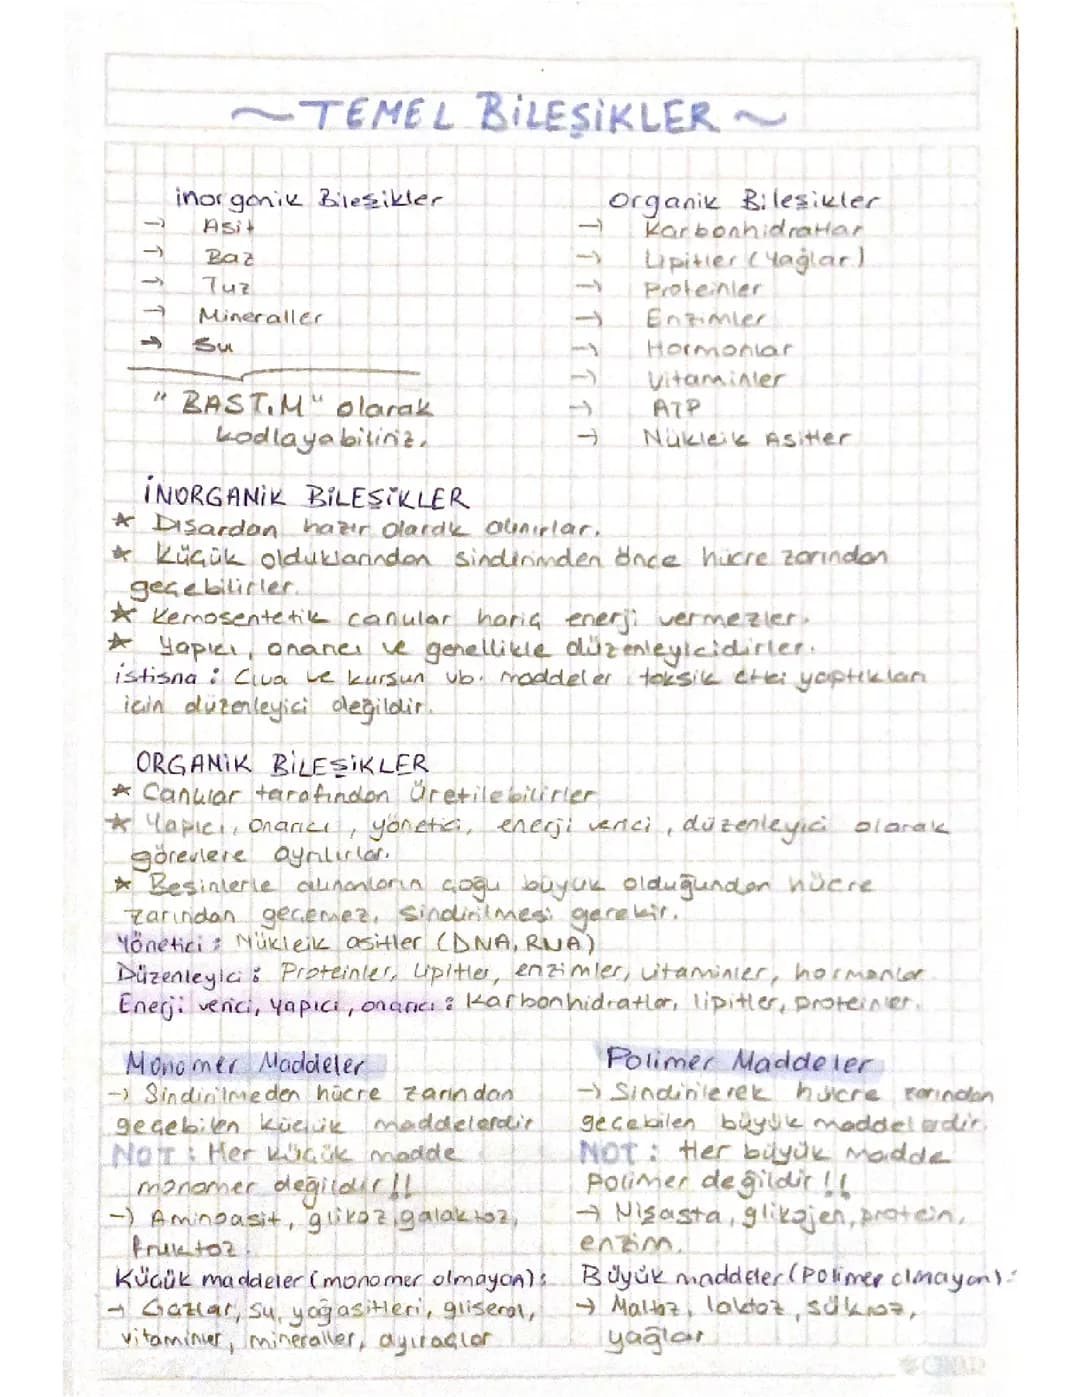 ~TEMEL BİLEŞİKLER~
inorganik Bileşikler
→ Asit
→ Baz
→ Tuz
→ Mineraller
→ Su
"BAST.M" olarak
kodlayabiliriz.
Organik Bileşikler
→ Karbonhidratlar
→ Lipitler (Yağlar)
→ Proteinler
→ Enzimler
→ Hormonlar
→ Vitaminler
→ ATP
→ Nükleik Asitler
İNORGANİK BİLEŞİKLER
* Dışardan hazır olarak alınırlar.
* Küçük olduklarından sindirimden önce hücre zarından
geçebilirler.
* Kemosentetik canlılar hariç enerji vermezler.
* Yapıcı, onarıcı ve genellikle düzenleyicidirler.
istisna: Civa ve kurşun vb. maddeler toksik etki yaptıkları
için düzenleyici değildir.
ORGANİK BİLEŞİKLER
* Canlılar tarafından üretilebilirler
* Yapıcı, Onarıcı, yönetici, enerji verici, düzenleyici olarak
görevlere ayrılırlar.
* Besinlerle alınanların çoğu büyük olduğundan hücre
zarından geçemez, sindirilmesi gerekir.
Yönetici: Nükleik asitler (DNA, RNA)
Düzenleyici: Proteinler, Lipitler, enzimler, vitaminler, hormonlar
Enerji verici, yapıcı, onarıcı: Karbonhidratlar, lipitler, proteinler.
Monomer Maddeler
→ Sindirilmeden hücre zarından
geçebilen küçük maddelerdir
NOT: Her küçük madde
monomer değildir!!
→ Aminoasit, glikoz, galaktoz,
fruktoz.
Küçük maddeler (monomer olmayan):
→ Gazlar, su, yağ asitleri, gliserol,
vitaminler, mineraller, ayıraçlar
Polimer Maddeler
→ Sindirilerek hücre zarından
geçebilen büyük maddelerdir.
NOT: Her büyük madde
polimer değildir!!
→ Nişasta, glikojen, protein,
enzim.
Büyük maddeler (Polimer olmayan):
→ Maltoz, laktoz, sükroz,
yağlar